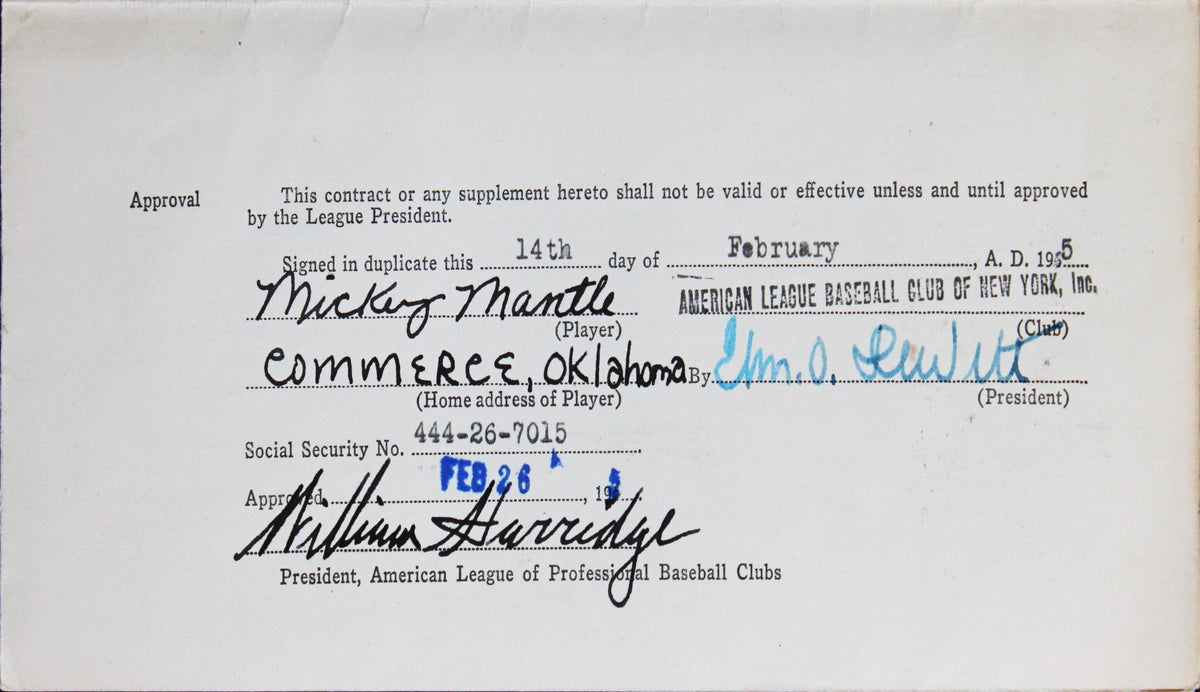 Approval This contract or any supplement hereto shall not be valid or effective unless and until approved
by the League President.
Signed in duplicate this 14th day of February, A. D. 1955
Mickey Mantle AMERICAN LEAGUE BASEBALL CLUB OF NEW YORK, Inc.
(Player) (Club)
COMMERCE, OKlahoma By Wm. O. DeWitt
(Home address of Player) (President)
Social Security No. 444-26-7015
Approved FEB 26, 195
William Harridge
President, American League of Professional Baseball Clubs